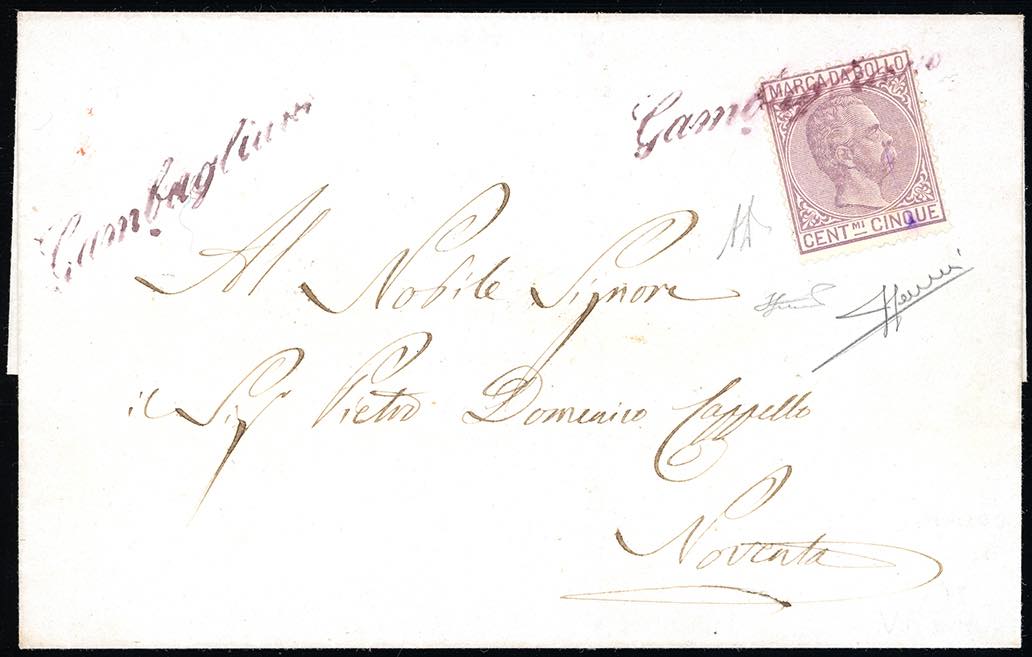 Gambugliano
MARCA DA BOLLO
CENT.MI CINQUE
Al Nobile Signore
il Sigr Pietro Domenico Cappello
Noventa